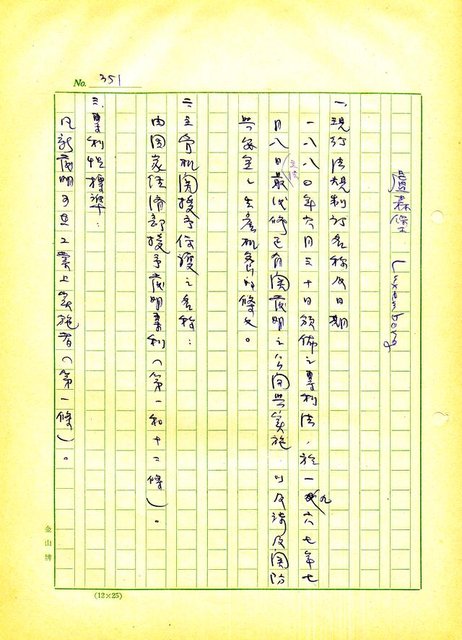 No. 351
盧森堡 Luxembourg
一、現行法規制訂名称及日期
一八八〇年六月三十日頒佈之專利法，於一九六七年七
月八日最後修正有関發明之公開與實施，以及涉及国防
與安全、生產机密的條文。
二、主管机関授予保護之名称：
由国家经濟部授予發明專利（第一和十二條）。
三、專利性標準：
凡新發明可在工業上實施者（第一條）。
金山牌
(12×25)